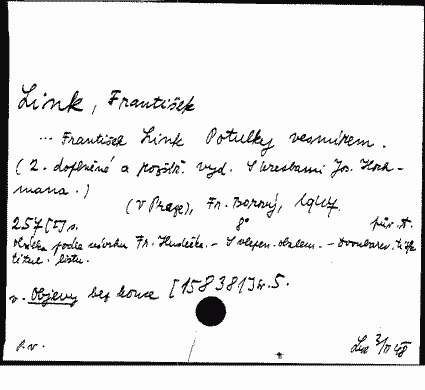 Link, František
... František Link Potulky vesmírem.
(2. doplněné a rozšíř. vyd. S kresbami Jos. Hoch-
mana.)
(V Praze), Fr. Borový, 1947.
257 [I] s. 8° pův. A.
Obálka podle návrhu Fr. Hudečka. - S vlepen. obálem. - Dvoubarev.
titul. listu.
v. Objevy bez konce [158381] sv. 5.
p. v.